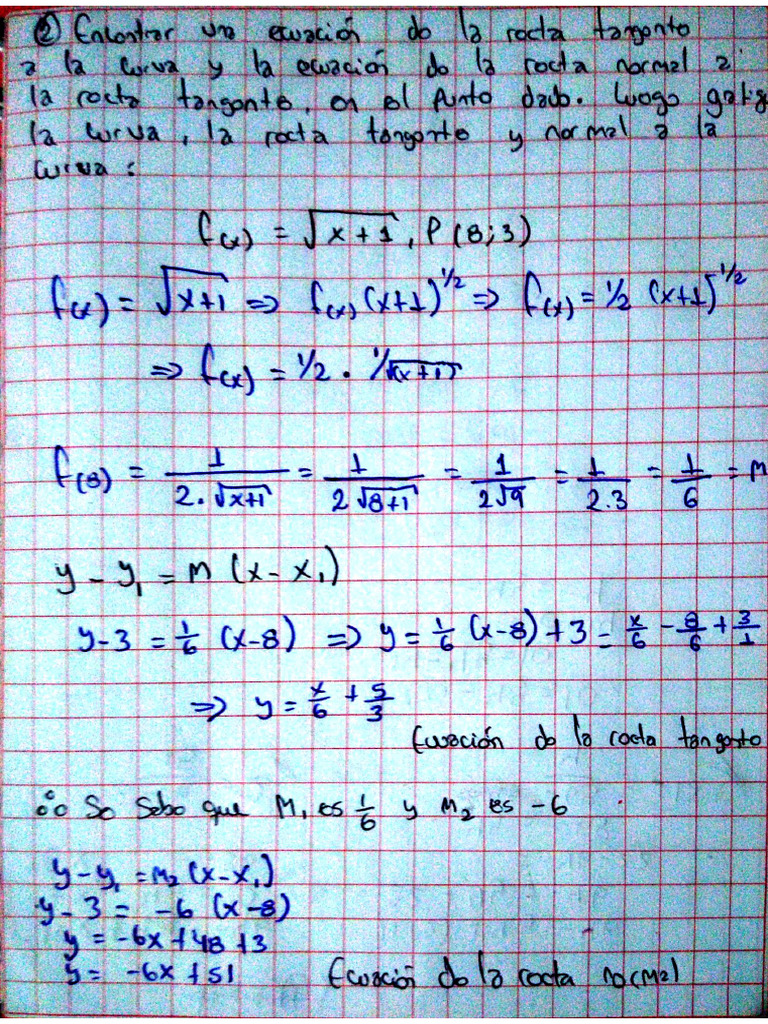 ② Encontrar una ecuación de la recta tangente
a la curva y la ecuación de la recta normal a
la recta tangente, en el punto dado. Luego grafiq
la curva, la recta tangente y normal a la
curva:
f(x) = √x+1, P(8;3)
f(x) = √x+1 ⇒ f(x) (x+1)^1/2 ⇒ f(x) = 1/2 (x+1)^1/2
⇒ f(x) = 1/2 . 1/√(x+1)
f(8) = 1/(2.√x+1) = 1/(2√8+1) = 1/(2√9) = 1/(2.3) = 1/6 = M
y - y₁ = M (x - x₁)
y-3 = 1/6 (x-8) ⇒ y = 1/6 (x-8) + 3 = x/6 - 8/6 + 3/1
⇒ y = x/6 + 5/3
Ecuación de la recta tangente
∴ Se Sabe que M₁ es 1/6 y M₂ es -6
y - y₁ = M₂ (x - x₁)
y - 3 = -6 (x-8)
y = -6x + 48 + 3
y = -6x + 51 Ecuación de la recta normal